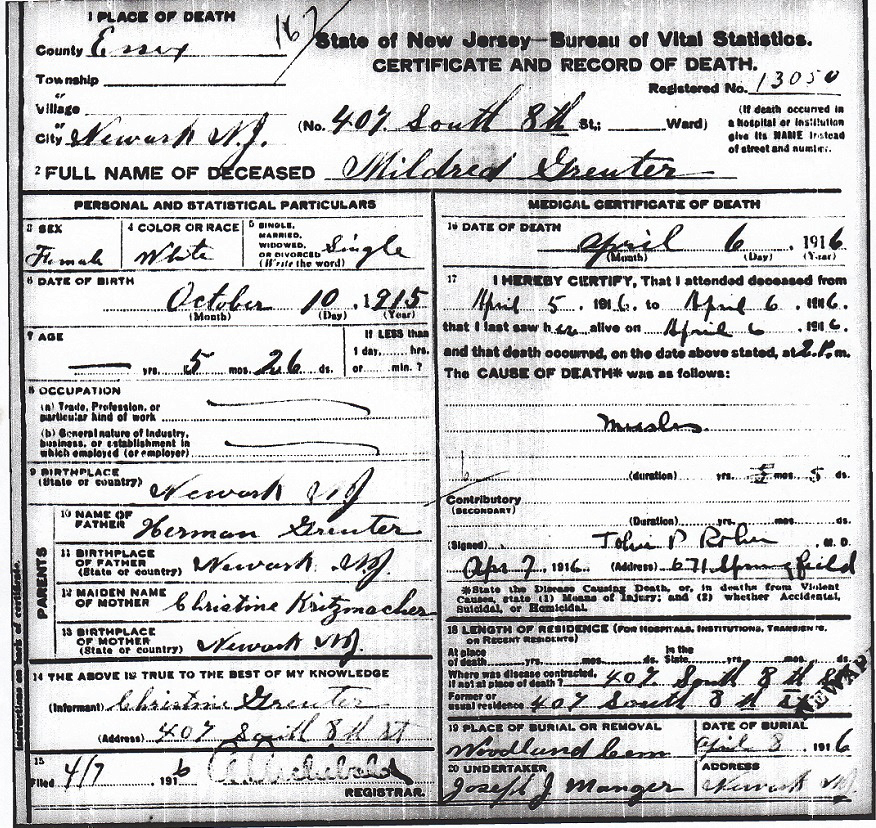 1 PLACE OF DEATH
County Essex
167
State of New Jersey—Bureau of Vital Statistics.
CERTIFICATE AND RECORD OF DEATH.
Township
Registered No. 13050
" Village
" City Newark N.J. (No. 407 South 8th St.; Ward)
(If death occurred in a hospital or institution give its NAME instead of street and number.
2 FULL NAME OF DECEASED Mildred Greuter
PERSONAL AND STATISTICAL PARTICULARS
3 SEX
Female
4 COLOR OR RACE
White
5 SINGLE, MARRIED, WIDOWED, OR DIVORCED (Write the word)
Single
6 DATE OF BIRTH
October 10, 1915
(Month) (Day) (Year)
7 AGE
— yrs. 5 mos. 26 ds.
If LESS than
1 day, hrs.
or min. ?
8 OCCUPATION
(a) Trade, Profession, or
particular kind of work
(b) General nature of industry,
business, or establishment in
which employed (or employer)
9 BIRTHPLACE
(State or country) Newark NJ
PARENTS
10 NAME OF
FATHER Herman Greuter
11 BIRTHPLACE
OF FATHER
(State or country) Newark NJ.
12 MAIDEN NAME
OF MOTHER Christine Kritzmacher
13 BIRTHPLACE
OF MOTHER
(State or country) Newark NJ.
14 THE ABOVE IS TRUE TO THE BEST OF MY KNOWLEDGE
(Informant) Christine Greuter
(Address) 407 South 8th st
15
Filed 4/7 1916
REGISTRAR.
Instructions on back of certificate.
MEDICAL CERTIFICATE OF DEATH
16 DATE OF DEATH
April 6, 1916
(Month) (Day) (Year)
17 I HEREBY CERTIFY, That I attended deceased from
April 5 1916. to April 6 1916.
that I last saw her alive on April 6 1916
and that death occurred, on the date above stated, at 2.P.m.
The CAUSE OF DEATH* was as follows:
Measles
(duration) yrs. mos. 5 ds.
Contributory
(SECONDARY)
(Duration) yrs. mos. ds.
(Signed) John P M. D.
Apr 7, 1916. (Address) 671 Springfield
*State the Disease Causing Death, or, in deaths from Violent
Causes, state (1) Means of Injury; and (2) whether Accidental,
Suicidal, or Homicidal.
18 LENGTH OF RESIDENCE (FOR HOSPITALS, INSTITUTIONS, TRANSIENTS, OR RECENT RESIDENTS)
At place
of death yrs. mos. ds.
In the
State yrs. mos. ds.
Where was disease contracted,
if not at place of death ? 407 South 8th St
Former or
usual residence 407 South 8th St
NEWARK
19 PLACE OF BURIAL OR REMOVAL
Woodland Cem
DATE OF BURIAL
April 8 1916
20 UNDERTAKER
Joseph J Manger
ADDRESS
Newark NJ